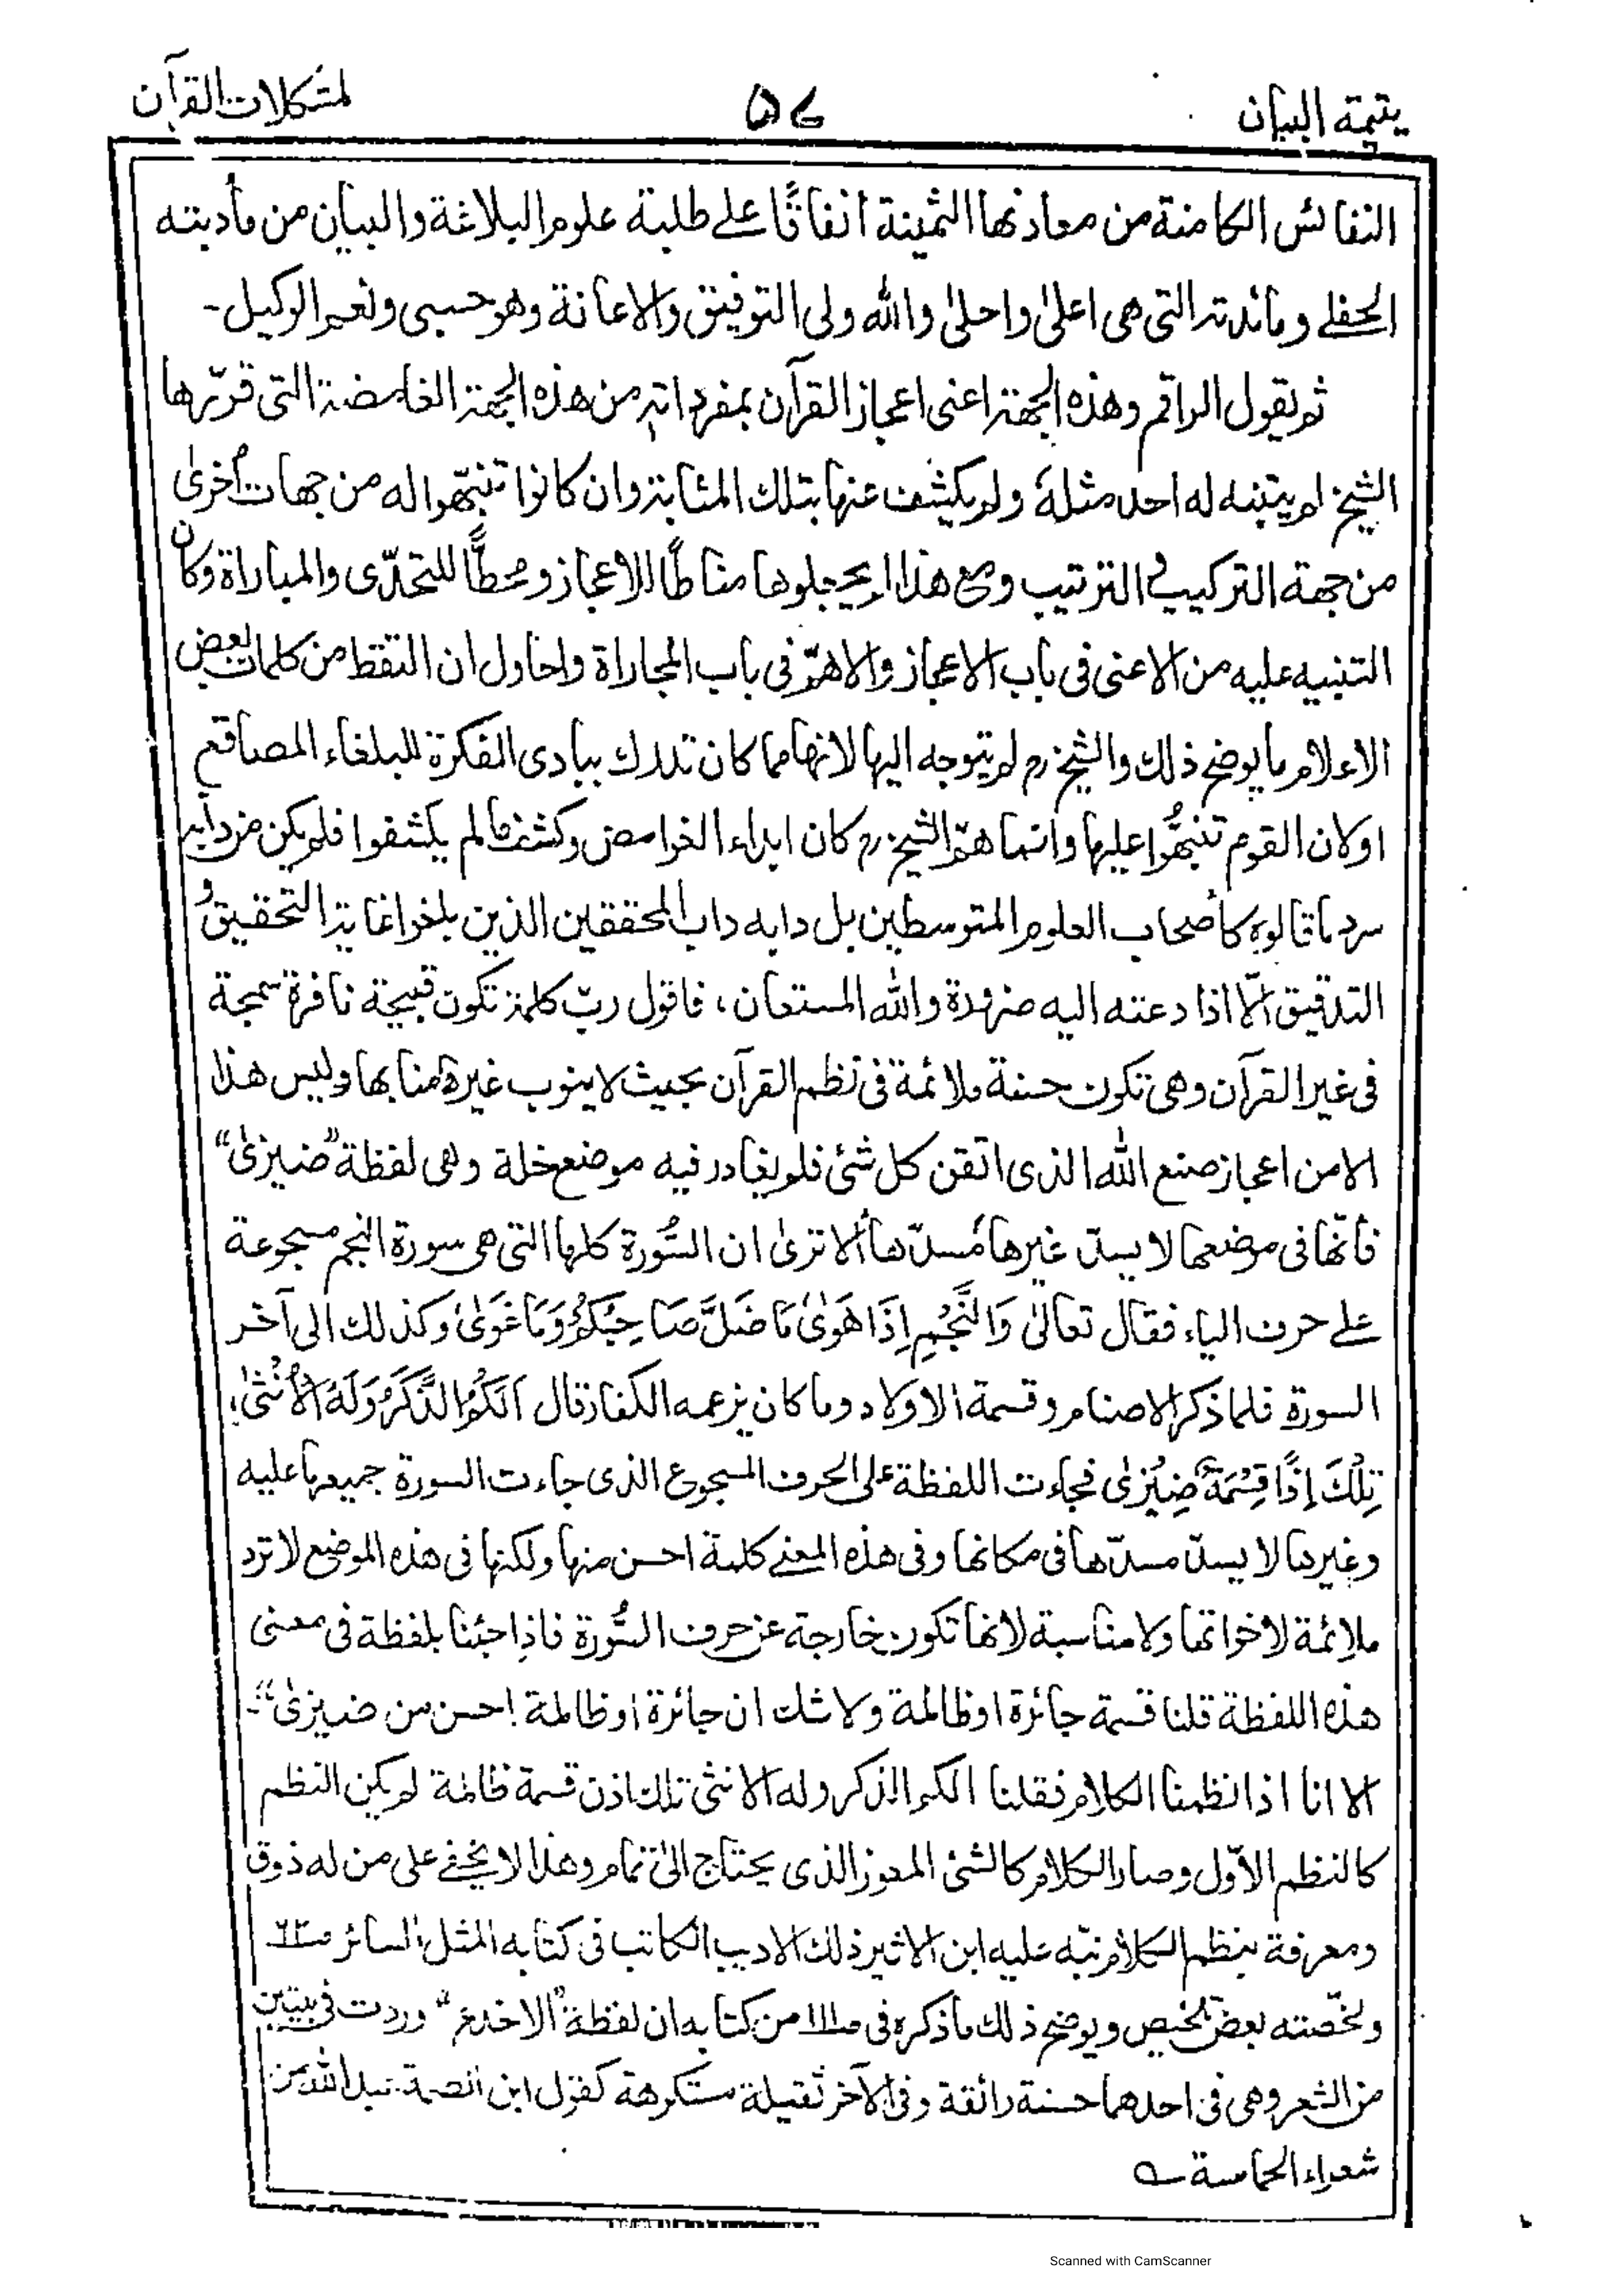 يتيمة البيان
٥٧
لمشكلات القرآن
النفائس الكامنة من معادنها الثمينة انفاقًا على طلبة علوم البلاغة والبيان من مأدبته
الحفلے ومائدته التى هى اعلىٰ واحلىٰ والله ولى التوفيق والاعانة وهو حسبى ونعم الوكيل-
ثم يقول الراقم وهذه الجهة اعنى اعجاز القرآن بمفرداته من هذه الجهة الغامضة التى قرّرها
الشيخ لم يتنبه له احد مثلهٗ ولم يكشف عنها بتلك المثابة وان كانوا تنبّهوا له من جهات أخرىٰ
من جهة التركيب و الترتيب ومع هذا لم يجعلوها مناطًا للاعجاز ومحطًّا للتحدّى والمباراة وكان
التنبيه عليه من الاعنى فى باب الاعجاز والاهمّ فى باب المجاراة واحاول ان التقط من كلمات بعض
الاعلام ما يوضح ذلك والشيخ رح لم يتوجه اليها لانها مما كان تدرك ببادى الفكرة للبلغاء المصاقع
اولان القوم تنبهُّوا عليها وانما همّ الشيخ رح كان ابداء الغوامض وكشف ما لم يكشفوا فلم يكن من دأبه
سرد ما قالوه كأصحاب العلوم المتوسطين بل دابه داب المحققين الذين بلغوا غاية التحقيق و
التدقيق الّا اذا دعته اليه ضرورة والله المستعان، فاقول ربّ كلمة تكون قبيحة نافرة سمجة
فى غير القرآن وهى تكون حسنة ملائمة فى نظم القرآن بحيث لا ينوب غيرها منابها وليس هذا
الا من اعجاز صنع الله الذى اتقن كل شئ فلم يغادر فيه موضع خلة وهى لفظة "ضيزىٰ"
فأنّها فى موضعها لا يسدّ غيرها مُسدّها ألا ترىٰ ان السُّورة كلها التى هى سورة النجم مسجوعة
على حرف الياء فقال تعالىٰ وَالنَّجْمِ اِذَا هَوىٰ مَا ضَلَّ صَاحِبُكُمْ وَمَا غَوىٰ وكذلك الى آخر
السورة فلما ذكر الاصنام وقسمة الاولاد وما كان يزعمه الكفار قال اَلَكُمُ الذَّكَرُ وَلَهُ الْاُنْثىٰ،
تِلْكَ اِذًا قِسْمَةٌ ضِيْزىٰ فجاءت اللفظة على الحرف المسجوع الذى جاءت السورة جميعها عليه
وغيرها لا يسدّ مسدّها فى مكانها وفى هذه المعنے كلمة احسن منها ولكنها فى هذه الموضع لا ترد
ملائمة لاخواتها ولا مناسبة لانها تكون خارجة عن حرف السُّورة فاذا جئنا بلفظة فى معنى
هذه اللفظة قلنا قسمة جائرة او ظالمة ولا شك ان جائرة او ظالمة احسن من ضيزىٰ"-
الا انا اذا نظمنا الكلام فقلنا الكم الذكر وله الانثى تلك اذن قسمة ظالمة لم يكن النظم
كالنظم الاوّل وصار الكلام كالشئ المعوز الذى يحتاج الىٰ تمام وهذا لا يخفے على من له ذوق
ومعرفة بنظم الكلام نبّه عليه ابن الاثير ذلك الاديب الكاتب فى كتابه المثل السائر
ولخّصته بعض تلخيص ويوضح ذلك ما ذكره فى صـ١١١ من كتابه ان لفظة "الاخدع" وردت فى بيتين
من الشعر وهى فى احدهما حسنة رائقة وفى الآخر ثقيلة مستكرهة كقول ابن الصمة عبد الله من
شعراء الحماسة ؎
Scanned with CamScanner